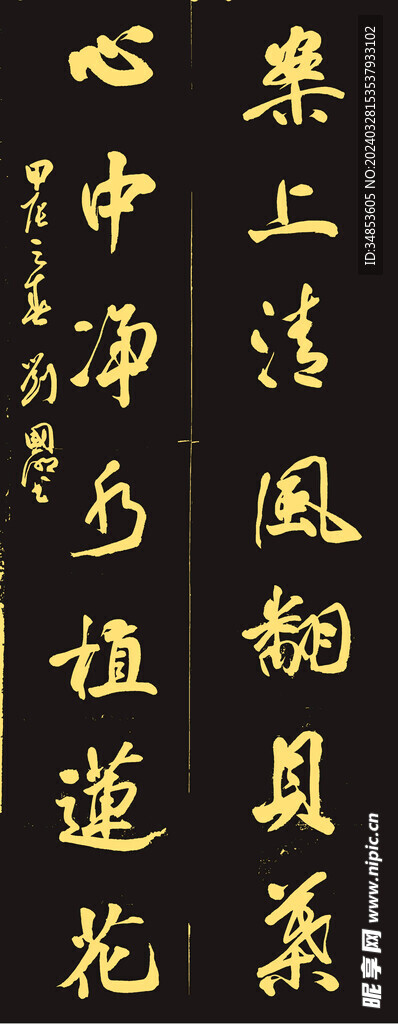 案上清風翻貝葉
心中净水植蓮花
甲辰之春 劉國
ID:34853605 NO:20240328153537933102
昵享网 www.nipic.cn